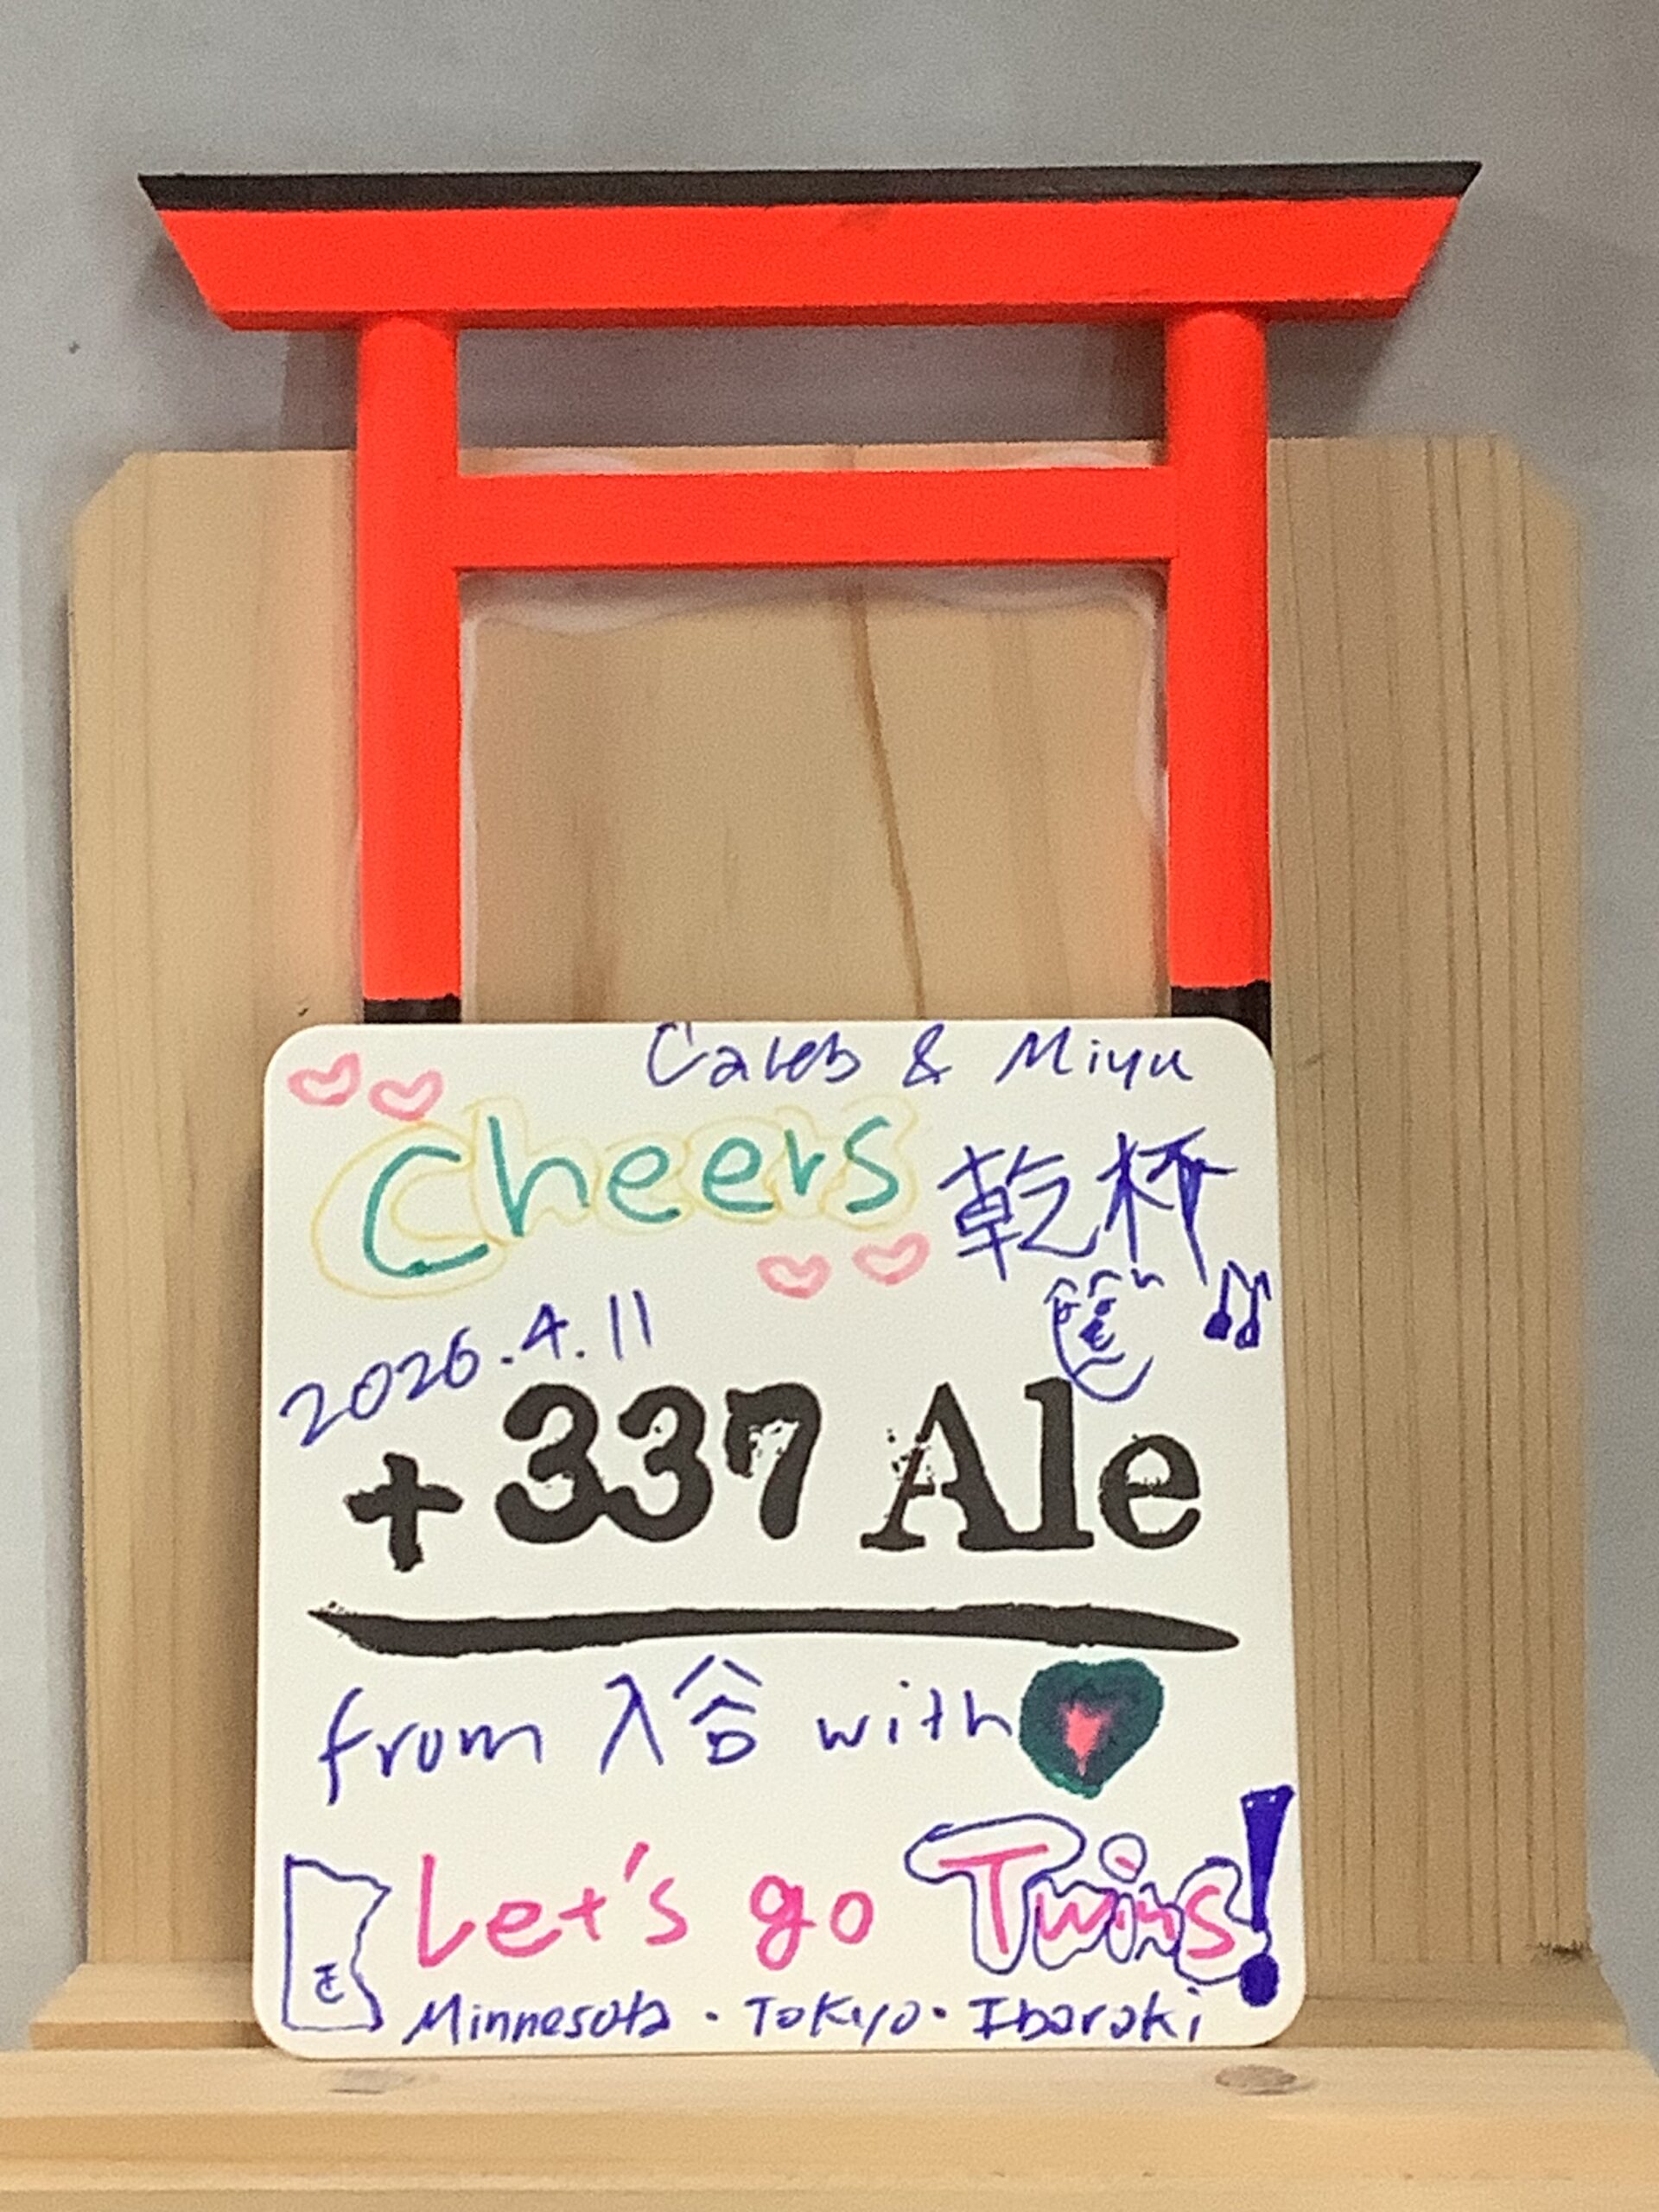 Caleb & Miyu
Cheers 乾杯
2026.4.11
+337 Ale
from 入谷 with
Let's go Twins!
Minnesota・Tokyo・Ibaraki